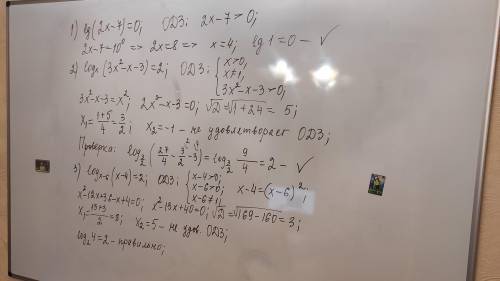 1) lg(2x-7)=0; ОДЗ: 2x-7>0;
2x-7=10⁰ => 2x=8 => x=4; lg 1=0 - ✓
2) logₓ(3x²-x-3)=2; ОДЗ: { x>0, x≠1, 3x²-x-3>0;
3x²-x-3=x²; 2x²-x-3=0; √D=√1+24 = 5;
x₁=(1+5)/4=3/2; x₂=-1 - не удовлетворяет ОДЗ;
Проверка: log_{3/2}(27/4-3/2-3)=log_{3/2} 9/4=2 - ✓
3) logₓ₋₆(x-4)=2; ОДЗ: { x-4>0; x-6>0; x-6≠1; x-4=(x-6)²;
x²-12x+36-x+4=0; x²-13x+40=0; √D=√169-160=3;
x₁=(13+3)/2=8; x₂=5 - не удов. ОДЗ;
log₂4=2 - правильно;